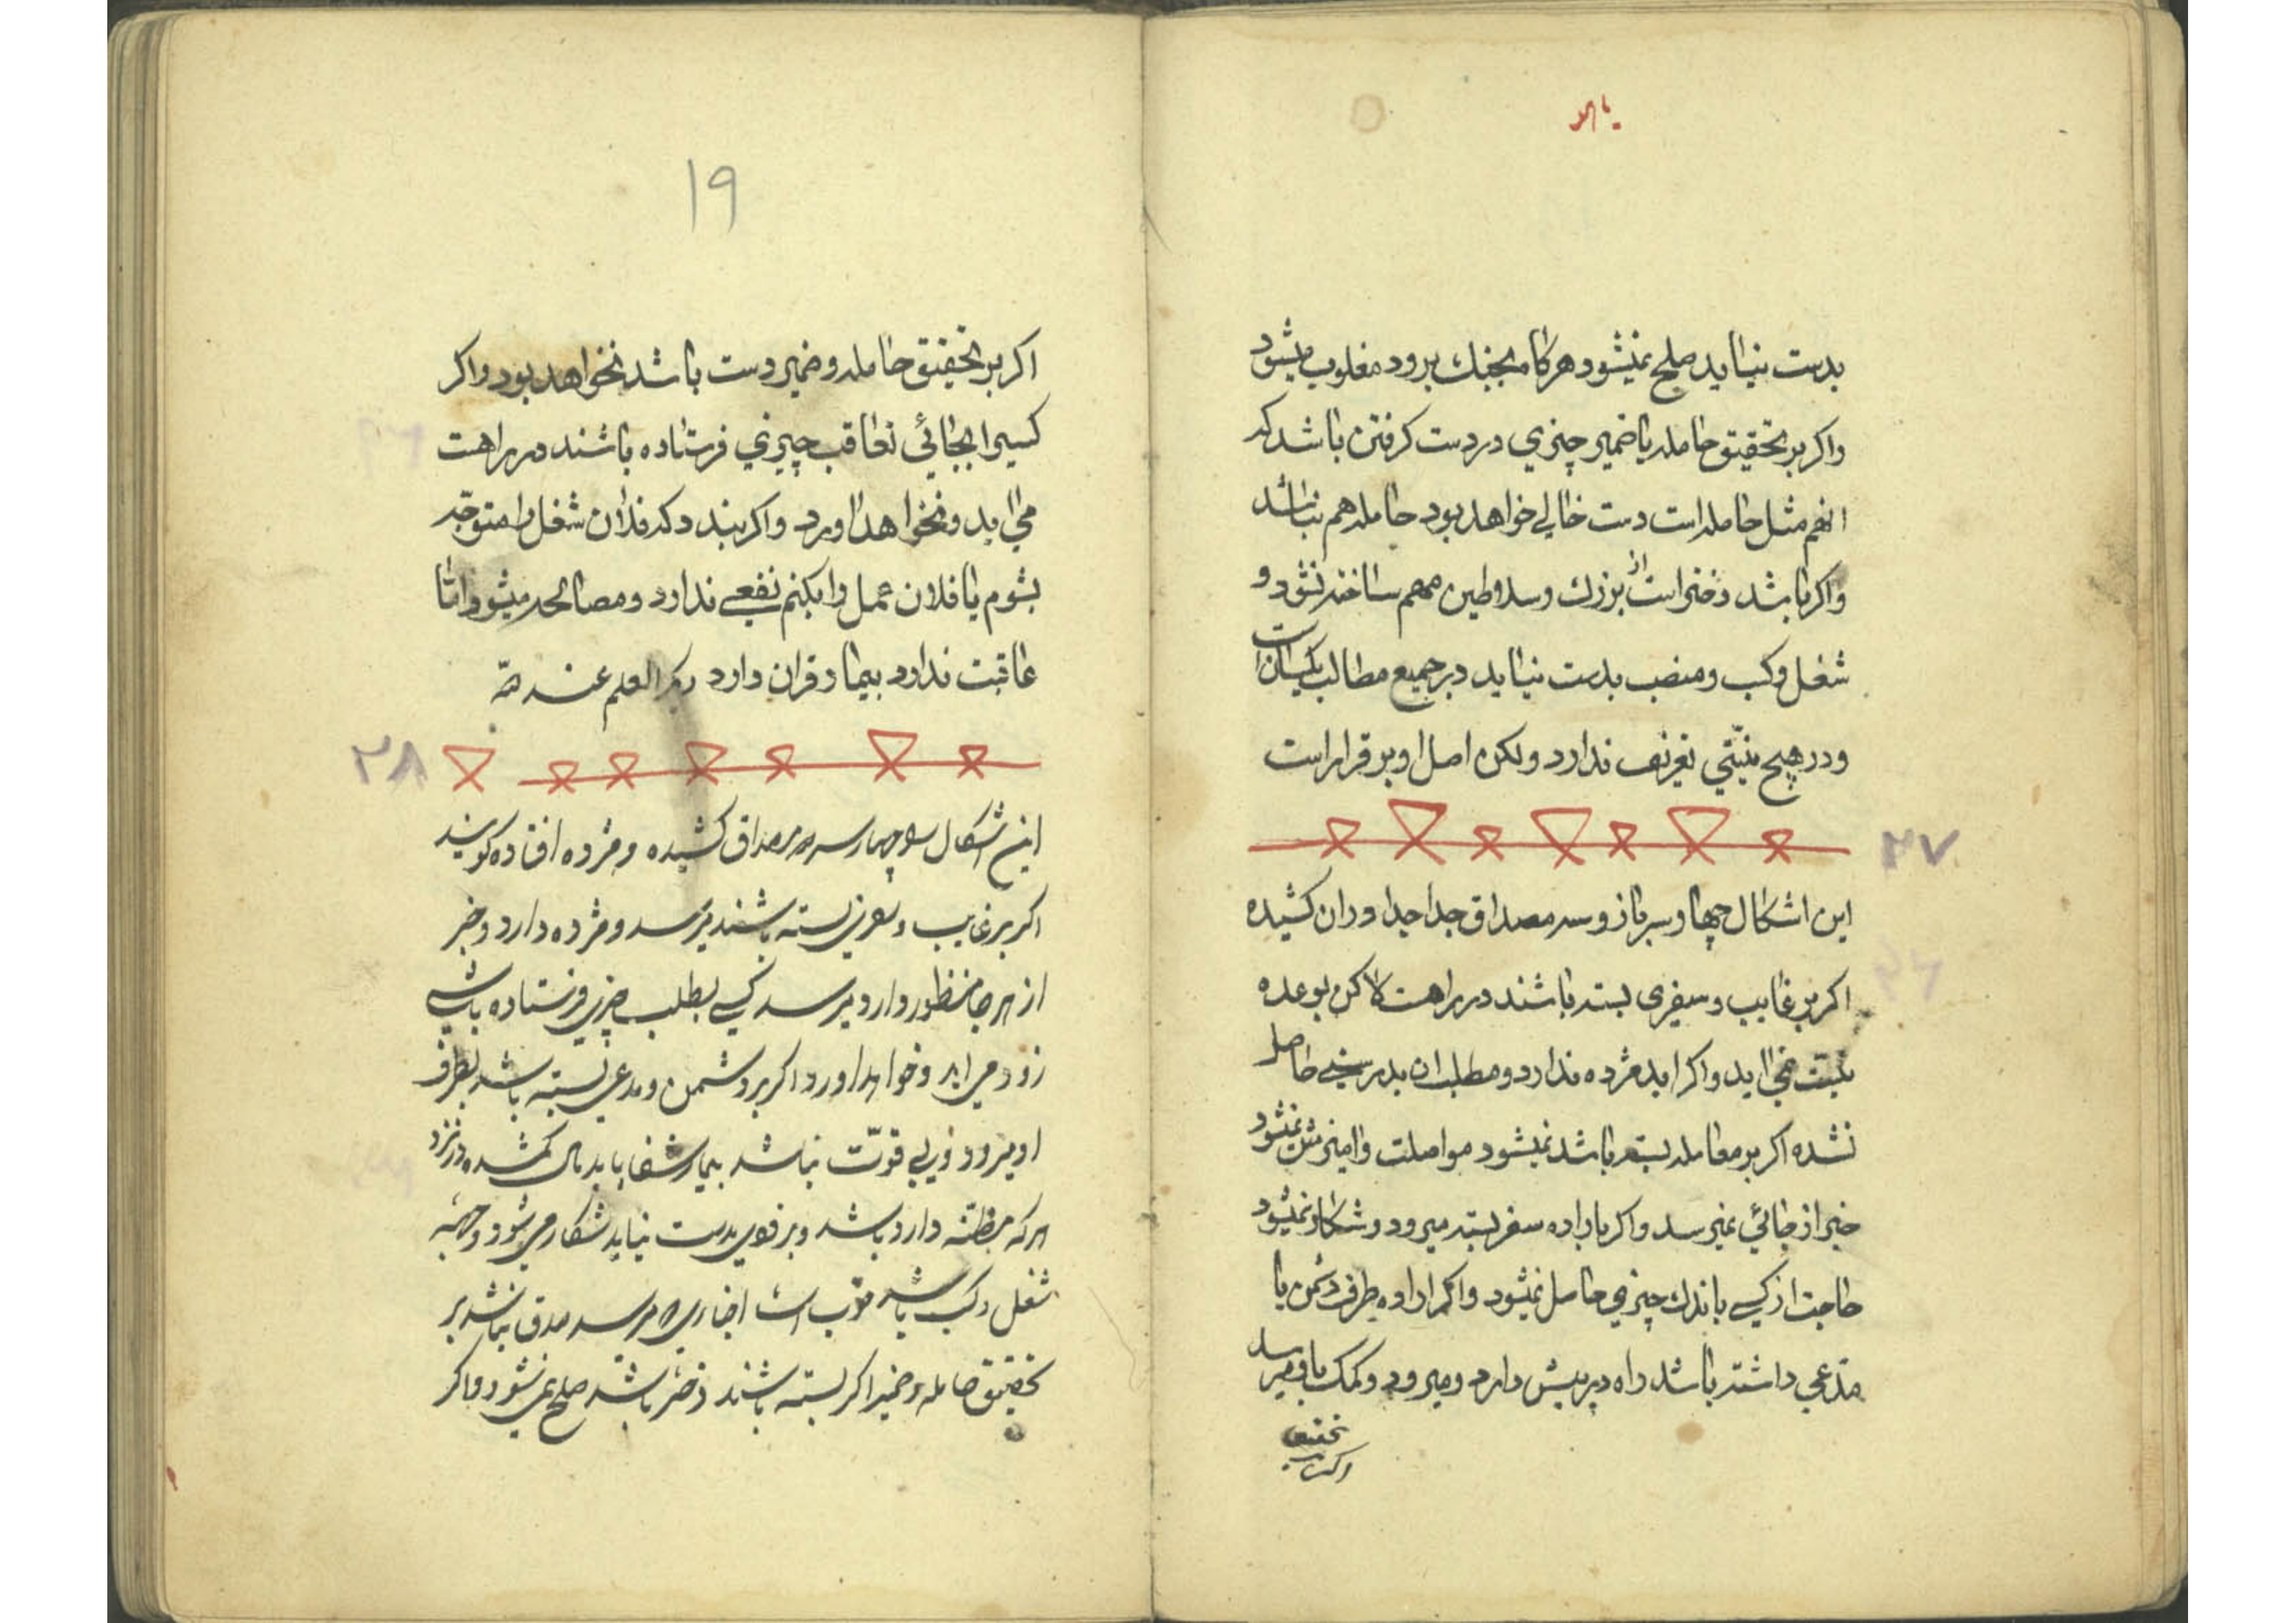 بدست نیاید صلح نمیشود هرکا بجنك برود مغلوب میشود
واکر بر تحقیق حامله یا ضمیر چیزي در دست کرفتن باشد که
انهم مثل حامله است دست خالی خواهد بود حامله هم نباشد
واکر باشد دختر است از بزرك وسلاطین مهم ساخته نشود و
شغل وکسب ومنصب بدست نیاید در جمیع مطالب یکسان است
ودر هیچ نیتی تعریف ندارد ولکن اصل او بر قرار است
۲۷
این اشکال چهار سرباز وسه مصداق جدا جدا دران کشیده
اکر بر غایب وسفری بسته باشند در راهست لاکن بوعده
نیت نمی اید واکر اید مژده ندارد ومطلب ان بدرستی حاصل
نشده اکر بر معامله بسته باشد نمیشود مواصلت وامیزش نمیشود
خبر از جائی نمیرسد واکر باراده سفر بسته میرود وشکار نمیشود
حاجت از کسی باندك چیزي حاصل نمیشود واکر اراده طرف دشمن یا
مدعي داشته باشد راه در پیش دارد ومیرود وکمك باو میرسد
اکر بر تحقیق
۱۹
اکر بر تحقیق حامله وضمیر دست باشد نخواهد بود واکر
کسیرا بجائی تعاقب چیزي فرستاده باشند در راهست
می اید ونخواهد اورد واکر بندد که فلان شغل را متوجه
بشوم یا فلان عمل را بکنم نفعی ندارد ومصالحه میشود اما
عاقبت ندارد بیمار قران دارد دیکر العلم عند الله
۲۸
این اشکال چهار سر مصداق کشیده ومژده افتاده کویند
اکر بر غایب وسفری بسته باشند میرسد ومژده دارد وخبر
از هر جا منظور دارد میرسد کسی بطلب چیزی فرستاده باشی
زود می اید وخواهد اورد اکر بر دشمن ومدعی بسته باشد بطرف
او میرود ولی قوّت نباشد بیمار شفا یابد مال کمشده در نزد
هرکه مظنه دارد باشد وبر قوی بدست نیاید شکار می شود وجهته
شغل وکسب باشد خوب است اخباری میرسد صدق نباشد بر
تحقیق حامله وضمیر اکر بسته باشند دختر باشد صلح نمی شود واکر